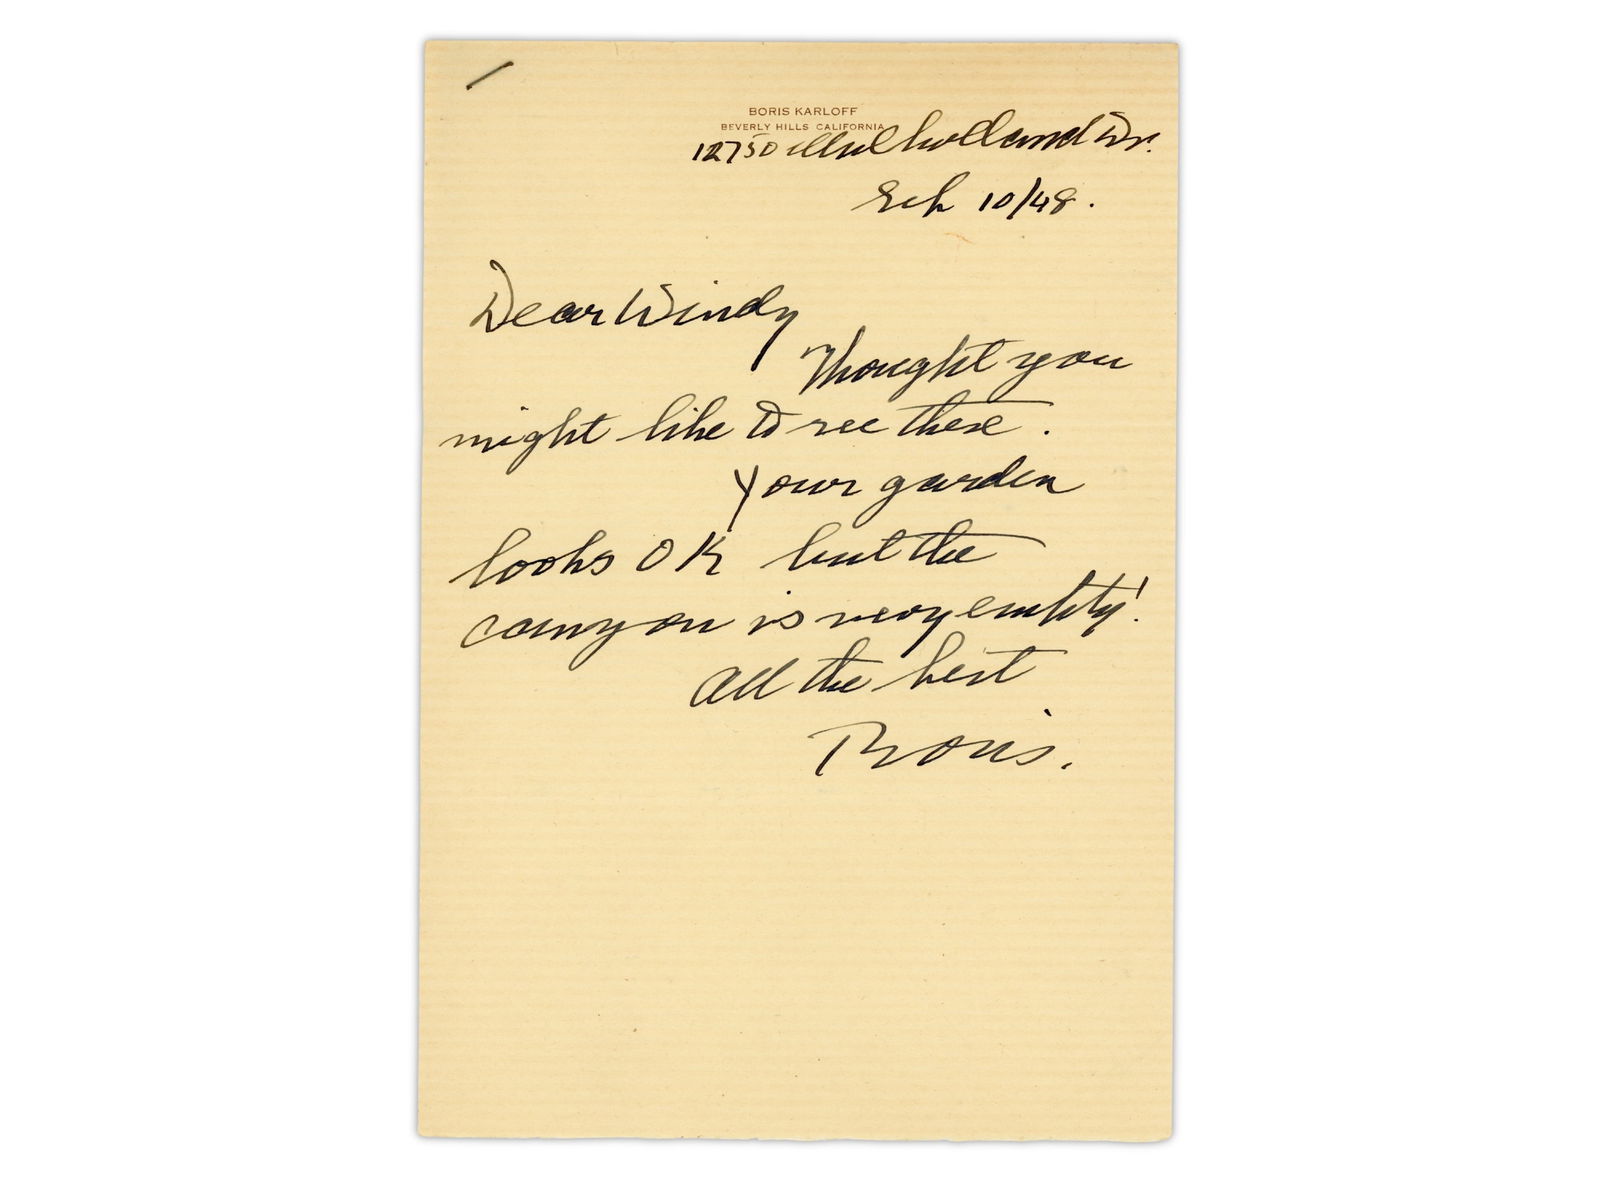 BORIS KARLOFF
BEVERLY HILLS CALIFORNIA
12750 Mulholland Dr.
Feb 10/48.
Dear Windy
Thought you
might like to see these.
Your garden
looks OK but the
canyon is very empty!
All the best
Boris.